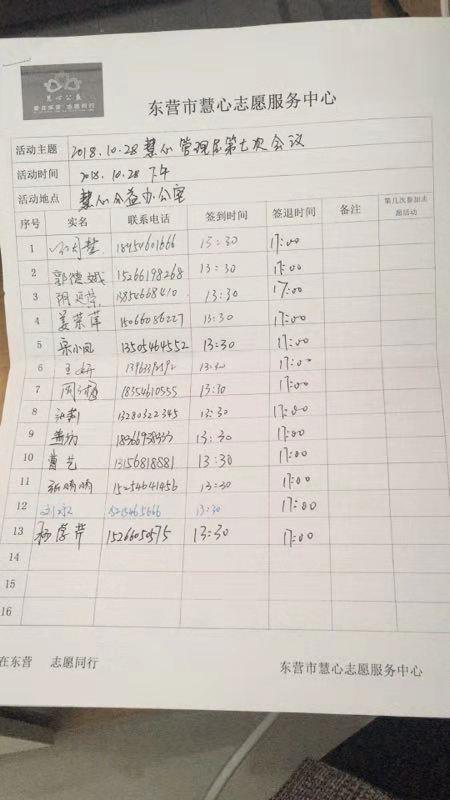 慧心公益
爱在东营 志愿同行
东营市慧心志愿服务中心
活动主题 2018.10.28 慧心管理层第七次会议
活动时间 2018.10.28 下午
活动地点 慧心公益办公室
序号 实名 联系电话 签到时间 签退时间 备注 第几次参加志愿活动
1 13:30 17:00
2 郭德娥 15266198268 13:30 17:00
3 13:30 17:00
4 姜荣萍 15066086227 13:30 17:00
5 宋小凤 13505464552 13:30 17:00
6 王妍 13:30 17:00
7 18354610555 13:30 17:00
8 13280322345 13:30 17:00
9 13:30 17:00
10 曹艺 13156818881 13:30 17:00
11 张晴晴 13:30 17:00
12 13:30 17:00
13 杨学芹 13:30 17:00
14
15
16
在东营 志愿同行 东营市慧心志愿服务中心